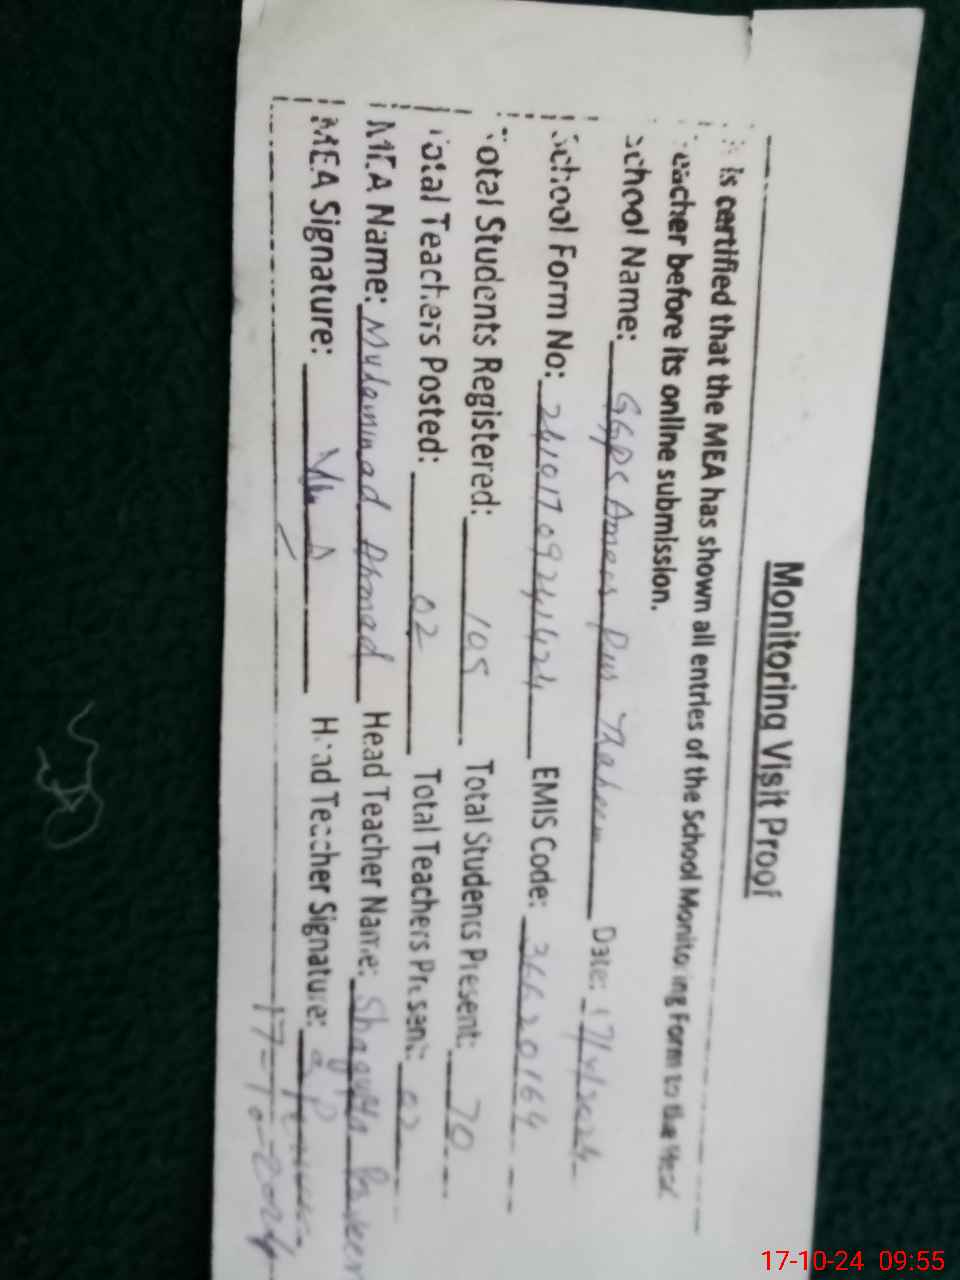 Monitoring Visit Proof
is certified that the MEA has shown all entries of the School Monitoring Form to the Head
Teacher before its online submission.
School Name: GGPS Date: 17/x/2024
School Form No: EMIS Code: 36620164
Total Students Registered: 105 Total Students Present: 70
Total Teachers Posted: 02 Total Teachers Present: 02
MEA Name: Muhammad Ahmad Head Teacher Name: Shagufta Parveen
MEA Signature: Head Teacher Signature:
17-10-2024
17-10-24 09:55